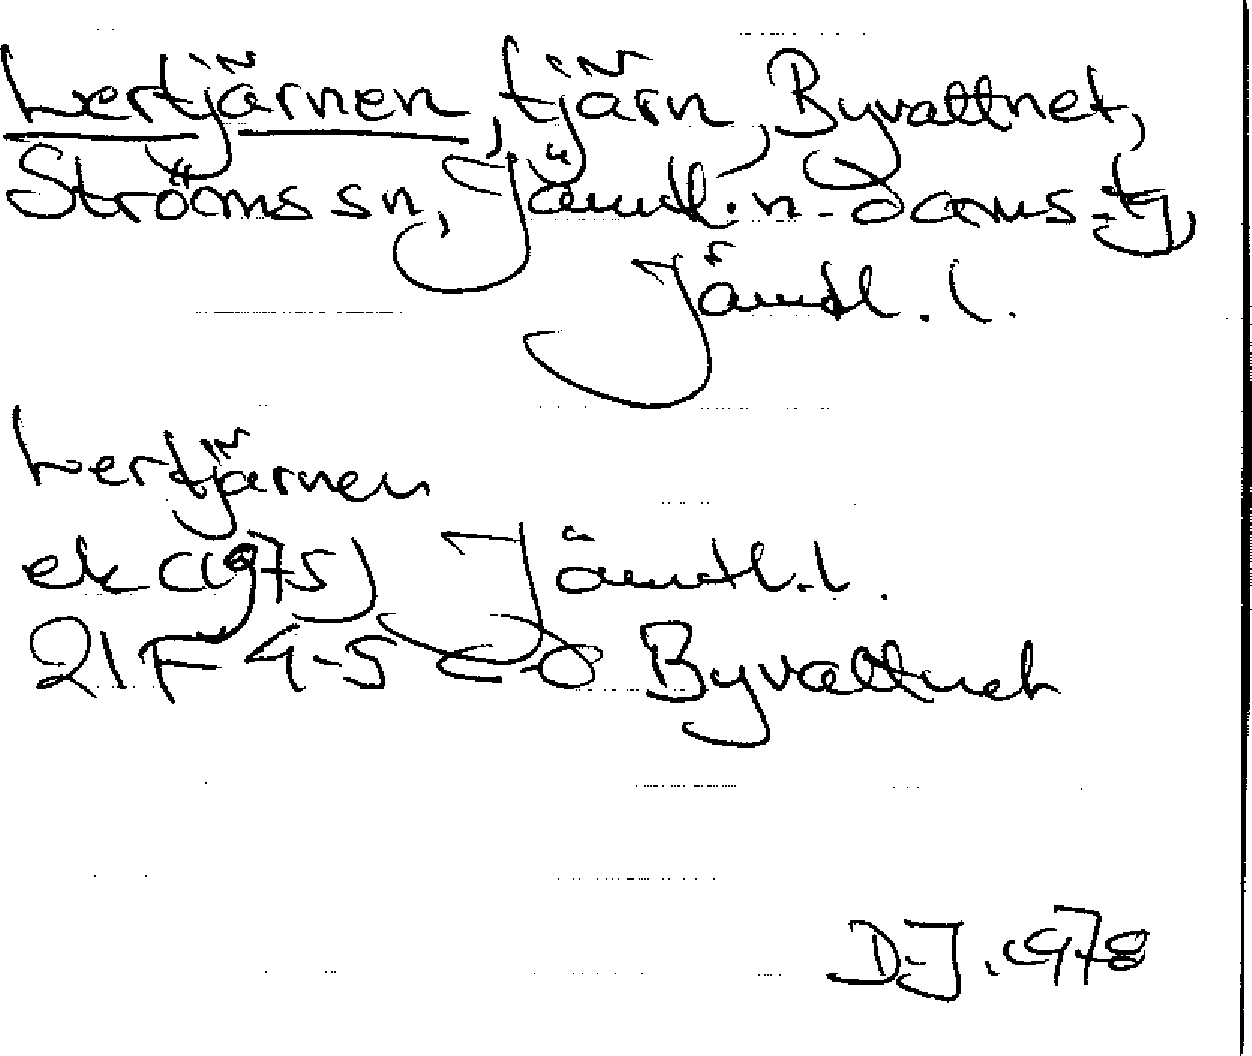 Lertjärnen, tjärn, Byvattnet,
Ströms sn, Jämtl. n. doms. tg,
Jämtl. l.
Lertjärnen
ek (1975) Jämtl. l.
21 F 4-5 c-d Byvattnet
D-J. 1978